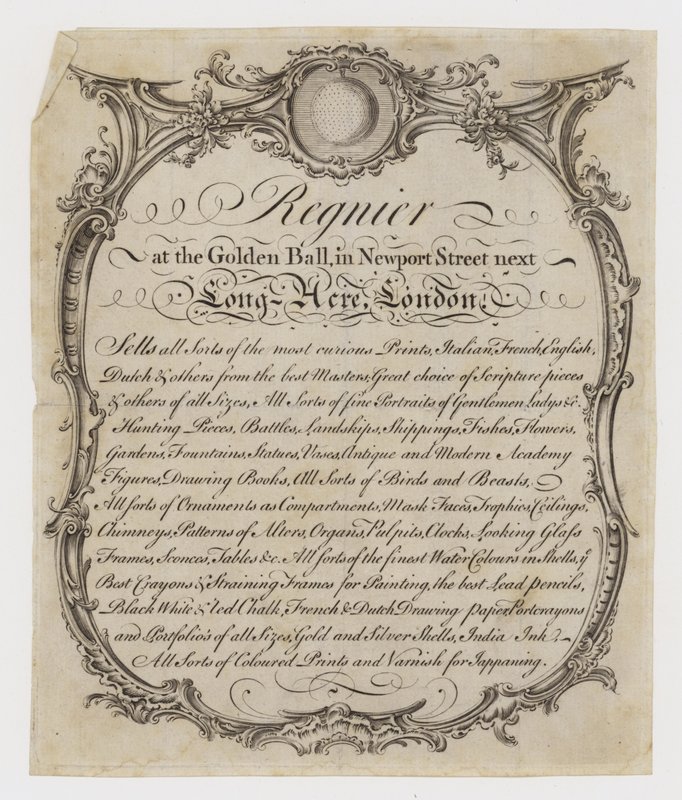 Regnier
at the Golden Ball, in Newport Street next
Long-Acre, London.
Sells all Sorts of the most curious Prints, Italian, French, English,
Dutch & others from the best Masters, Great choice of Scripture pieces
& others of all Sizes, All Sorts of fine Portraits of Gentlemen Ladys &c.
Hunting Pieces, Battles, Landskips, Shippings, Fishes, Flowers,
Gardens, Fountains, Statues, Vases, Antique and Modern Academy
Figures, Drawing Books, All Sorts of Birds and Beasts,
All sorts of Ornaments as Compartments, Mask Faces, Trophies, Ceilings,
Chimneys, Patterns of Alters, Organs, Pulpits, Clocks, Looking Glass
Frames, Sconces, Tables &c. All sorts of the finest Water Colours in Shells, ye
Best Crayons & Straining Frames for Painting, the best Lead Pencils,
Black White & red Chalk, French & Dutch Drawing Paper, Portcrayons
and Portfolio's of all Sizes, Gold and Silver Shells, India Ink,
All Sorts of Coloured Prints and Varnish for Jappaning.